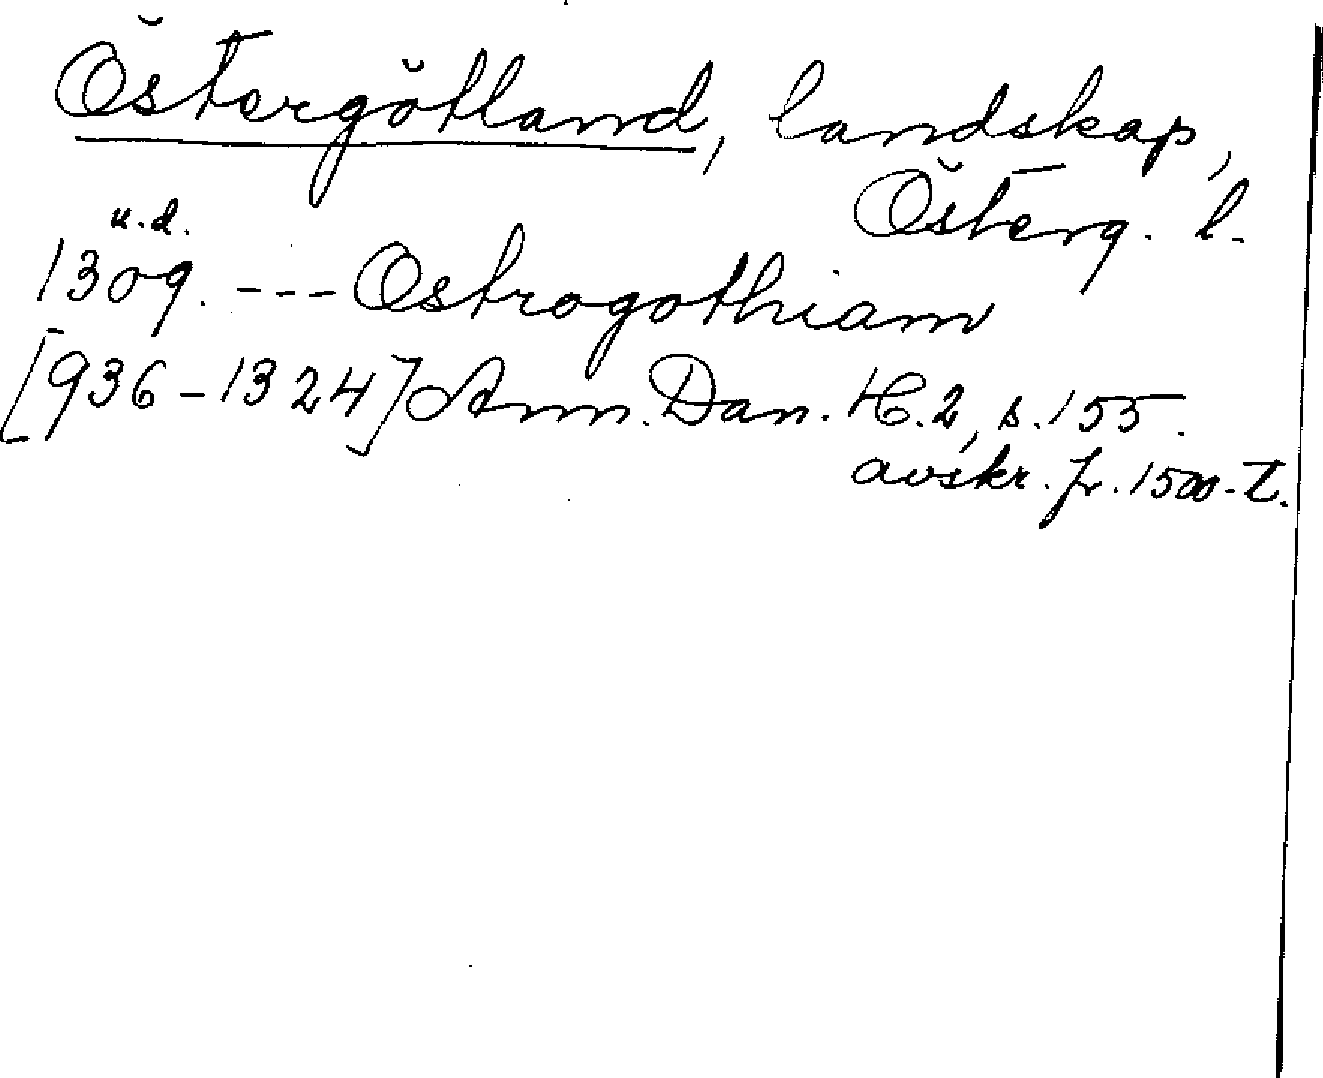 Östergötland, landskap,
Österg. l.
u.d.
1309. --- Ostrogothiam
[936-1324] Ann. Dan. H. 2, s. 155.
avskr. fr. 1500-t.